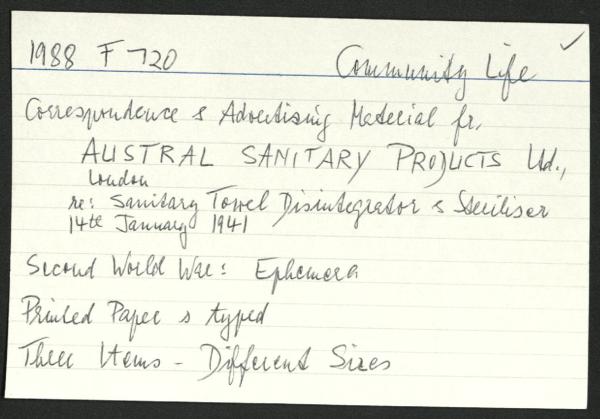 1988 F 720 Community Life ✓
Correspondence & Advertising Material fr.
AUSTRAL SANITARY PRODUCTS Ltd.,
London
re: Sanitary Towel Disintegrator & Steriliser
14th January 1941
Second World War: Ephemera
Printed Paper & typed
Three Items - Different Sizes